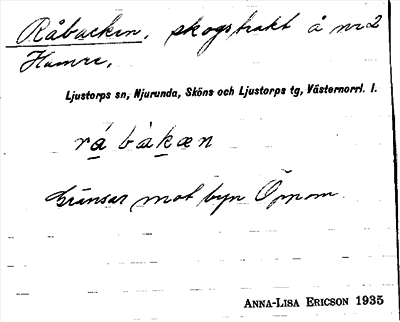 Råbacken, skogstrakt å nr 2
Hamre,
Ljustorps sn, Njurunda, Sköns och Ljustorps tg, Västernorrl. l.
rå̀ bàkæn
Gränsar mot byn Öppom.
ANNA-LISA ERICSON 1935